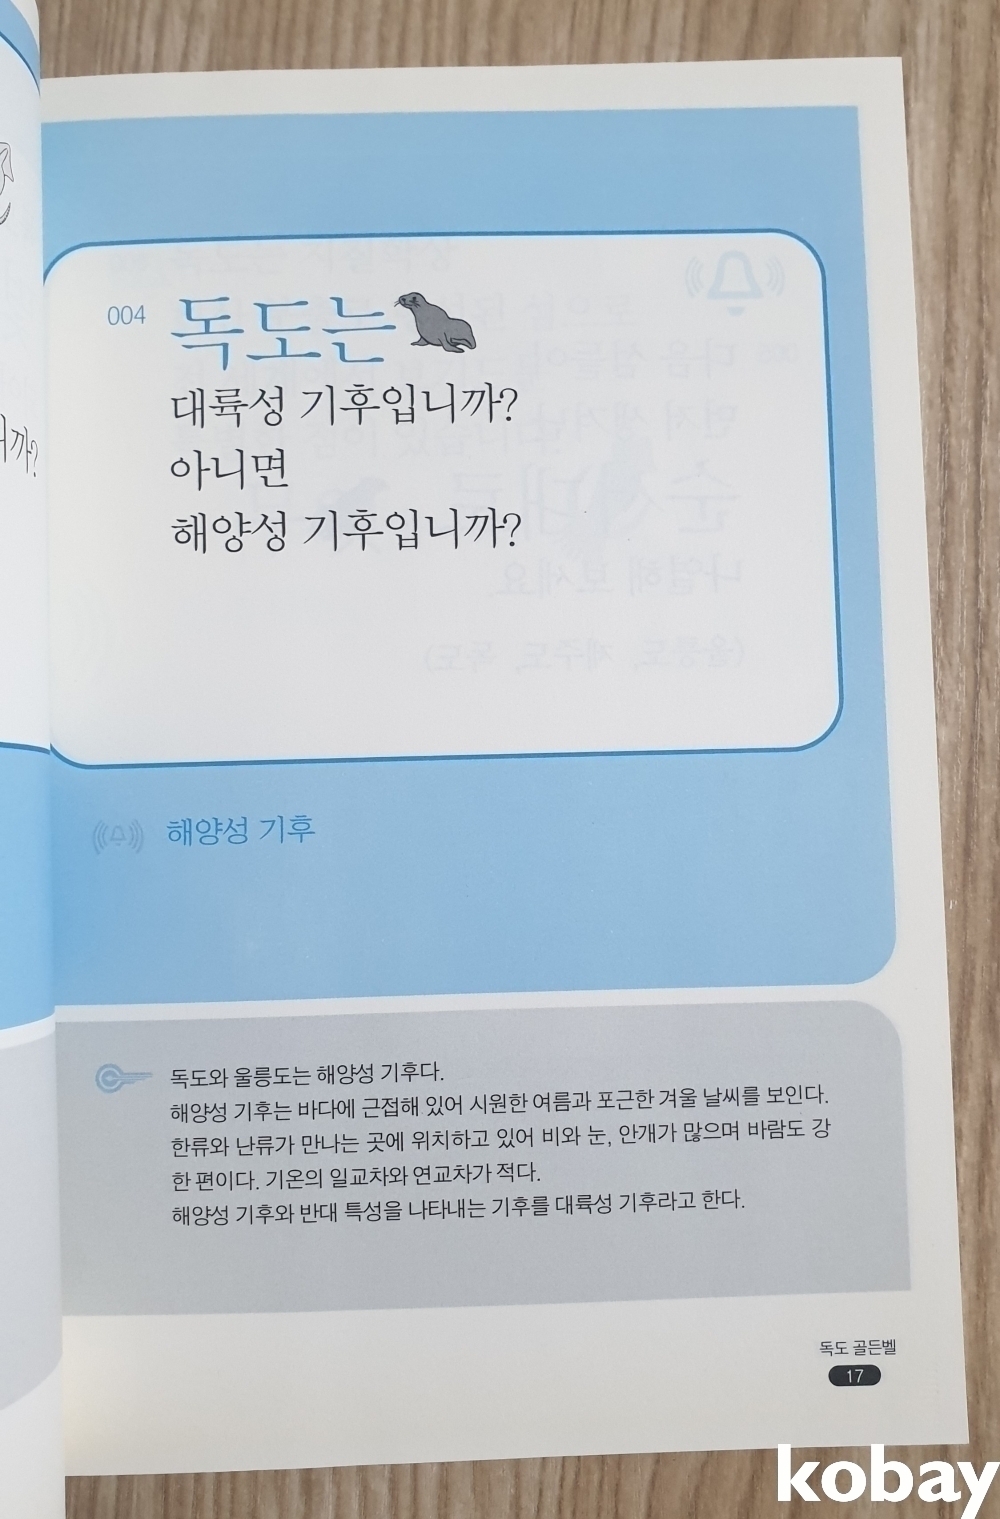 004
독도는
대륙성 기후입니까?
아니면
해양성 기후입니까?
해양성 기후
독도와 울릉도는 해양성 기후다.
해양성 기후는 바다에 근접해 있어 시원한 여름과 포근한 겨울 날씨를 보인다.
한류와 난류가 만나는 곳에 위치하고 있어 비와 눈, 안개가 많으며 바람도 강
한 편이다. 기온의 일교차와 연교차가 적다.
해양성 기후와 반대 특성을 나타내는 기후를 대륙성 기후라고 한다.
독도 골든벨
17
kobay